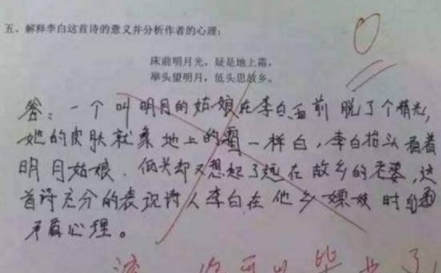 五、解释李白这首诗的意义并分析作者的心理:
床前明月光,疑是地上霜,
举头望明月,低头思故乡。
答:一个叫明月的姑娘在李白面前脱了个精光,
她的皮肤就象地上的霜一样白,李白抬头看着
明月姑娘,低头却又想起了远在故乡的老婆,这
首诗充分的表现诗人李白在他乡嫖妓时的
矛盾心理。
你可以毕业了